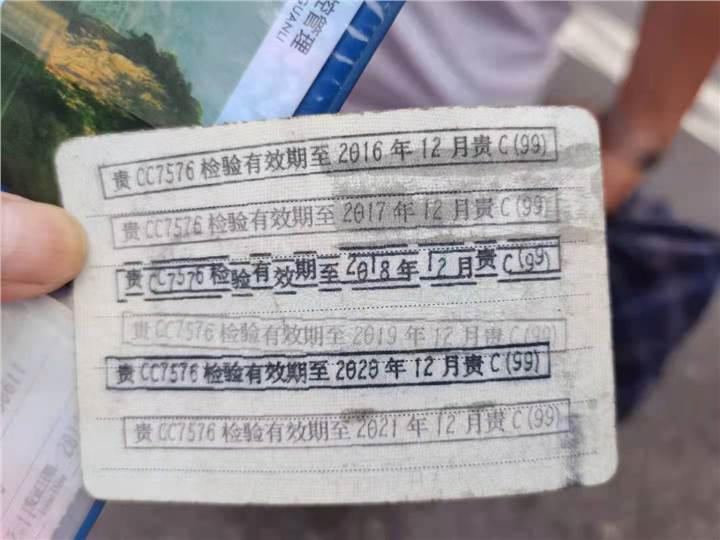 控管理
GUANLI
贵CC7576检验有效期至2016年12月贵C(99)
贵CC7576检验有效期至2017年12月贵C(99)
贵CC7576检验有效期至2018年12月贵C(99)
贵CC7576检验有效期至2019年12月贵C(99)
贵CC7576检验有效期至2020年12月贵C(99)
贵CC7576检验有效期至2021年12月贵C(99)